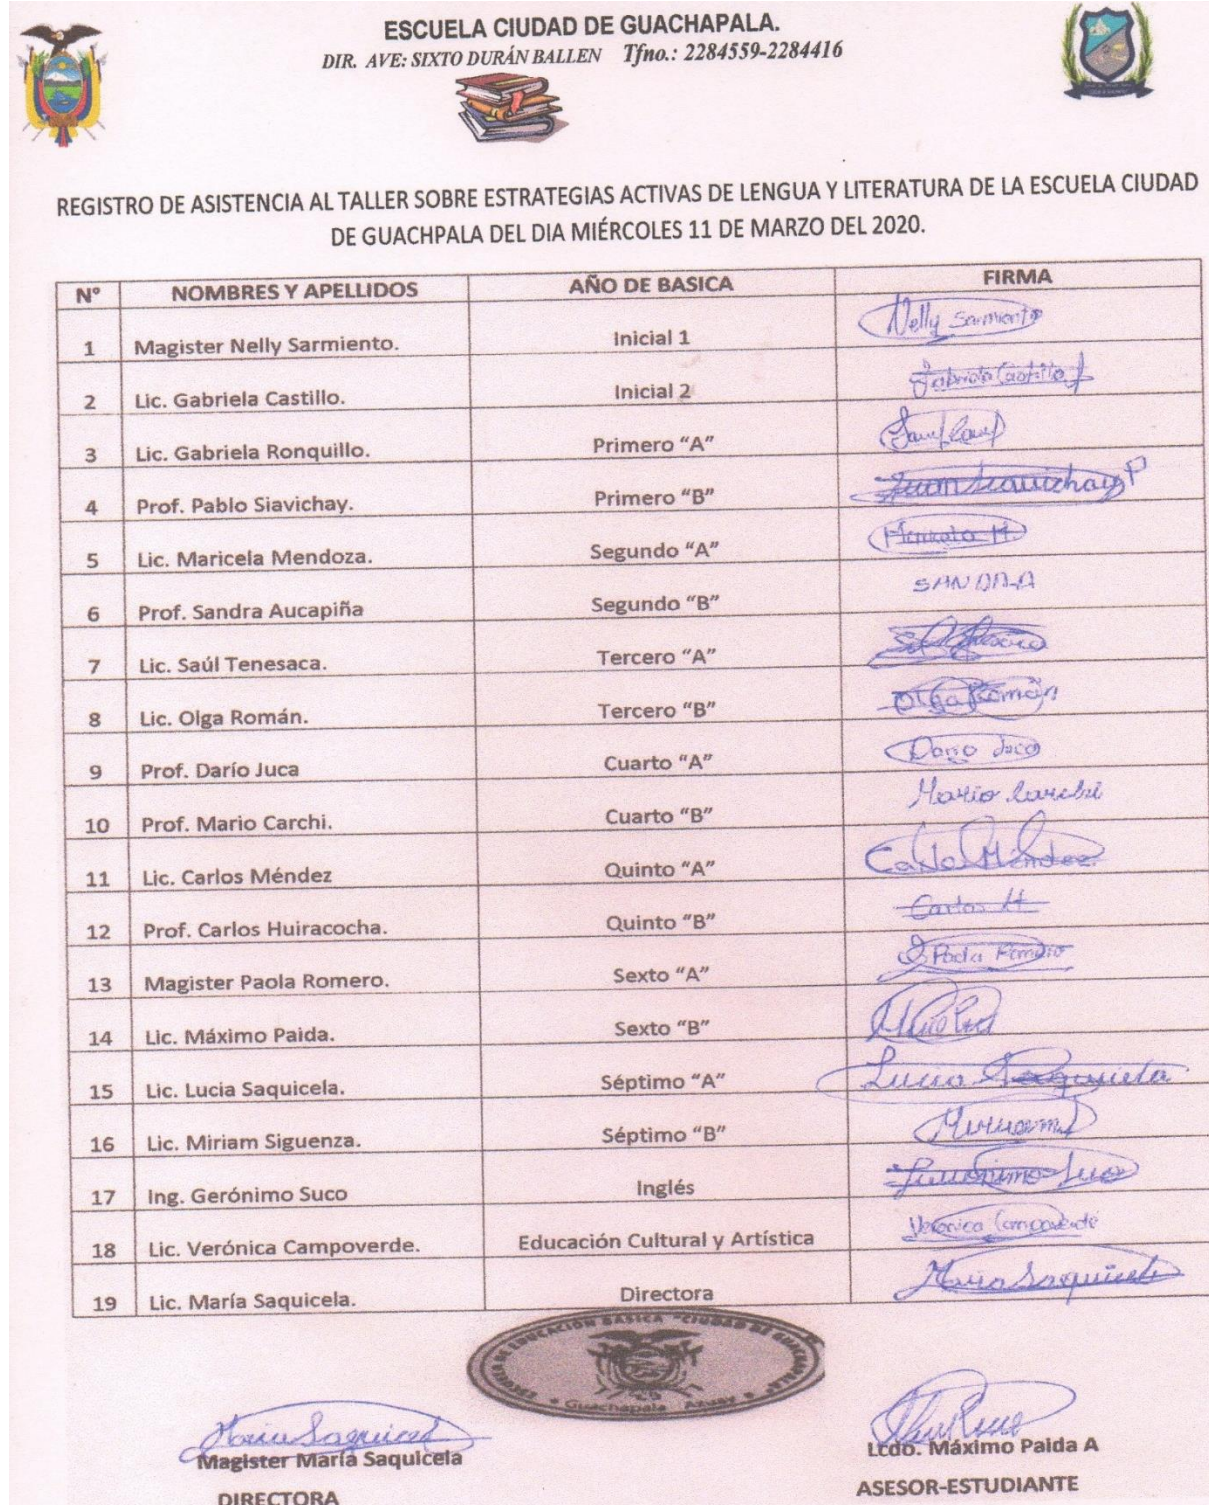 ESCUELA CIUDAD DE GUACHAPALA.
DIR. AVE: SIXTO DURÁN BALLEN Tfno.: 2284559-2284416
REGISTRO DE ASISTENCIA AL TALLER SOBRE ESTRATEGIAS ACTIVAS DE LENGUA Y LITERATURA DE LA ESCUELA CIUDAD
DE GUACHPALA DEL DIA MIÉRCOLES 11 DE MARZO DEL 2020.
N° NOMBRES Y APELLIDOS AÑO DE BASICA FIRMA
1 Magister Nelly Sarmiento. Inicial 1 Nelly Sarmiento
2 Lic. Gabriela Castillo. Inicial 2 Gabriela Castillo
3 Lic. Gabriela Ronquillo. Primero "A"
4 Prof. Pablo Siavichay. Primero "B" Siavichay P
5 Lic. Maricela Mendoza. Segundo "A"
6 Prof. Sandra Aucapiña Segundo "B" SANDRA
7 Lic. Saúl Tenesaca. Tercero "A"
8 Lic. Olga Román. Tercero "B" Olga Román
9 Prof. Darío Juca Cuarto "A" Dario Juca
10 Prof. Mario Carchi. Cuarto "B" Mario Carchi
11 Lic. Carlos Méndez Quinto "A" Carlos Méndez
12 Prof. Carlos Huiracocha. Quinto "B" Carlos H
13 Magister Paola Romero. Sexto "A" Paola Romero
14 Lic. Máximo Paida. Sexto "B"
15 Lic. Lucia Saquicela. Séptimo "A" Lucia Saquicela
16 Lic. Miriam Siguenza. Séptimo "B"
17 Ing. Gerónimo Suco Inglés
18 Lic. Verónica Campoverde. Educación Cultural y Artística Verónica Campoverde
19 Lic. María Saquicela. Directora Maria Saquicela
ESCUELA DE EDUCACIÓN BASICA "CIUDAD DE GUACHAPALA"
Guachapala - Azuay
Maria Saquicela
Magister María Saquicela
DIRECTORA
Lcdo. Máximo Paida A
ASESOR-ESTUDIANTE